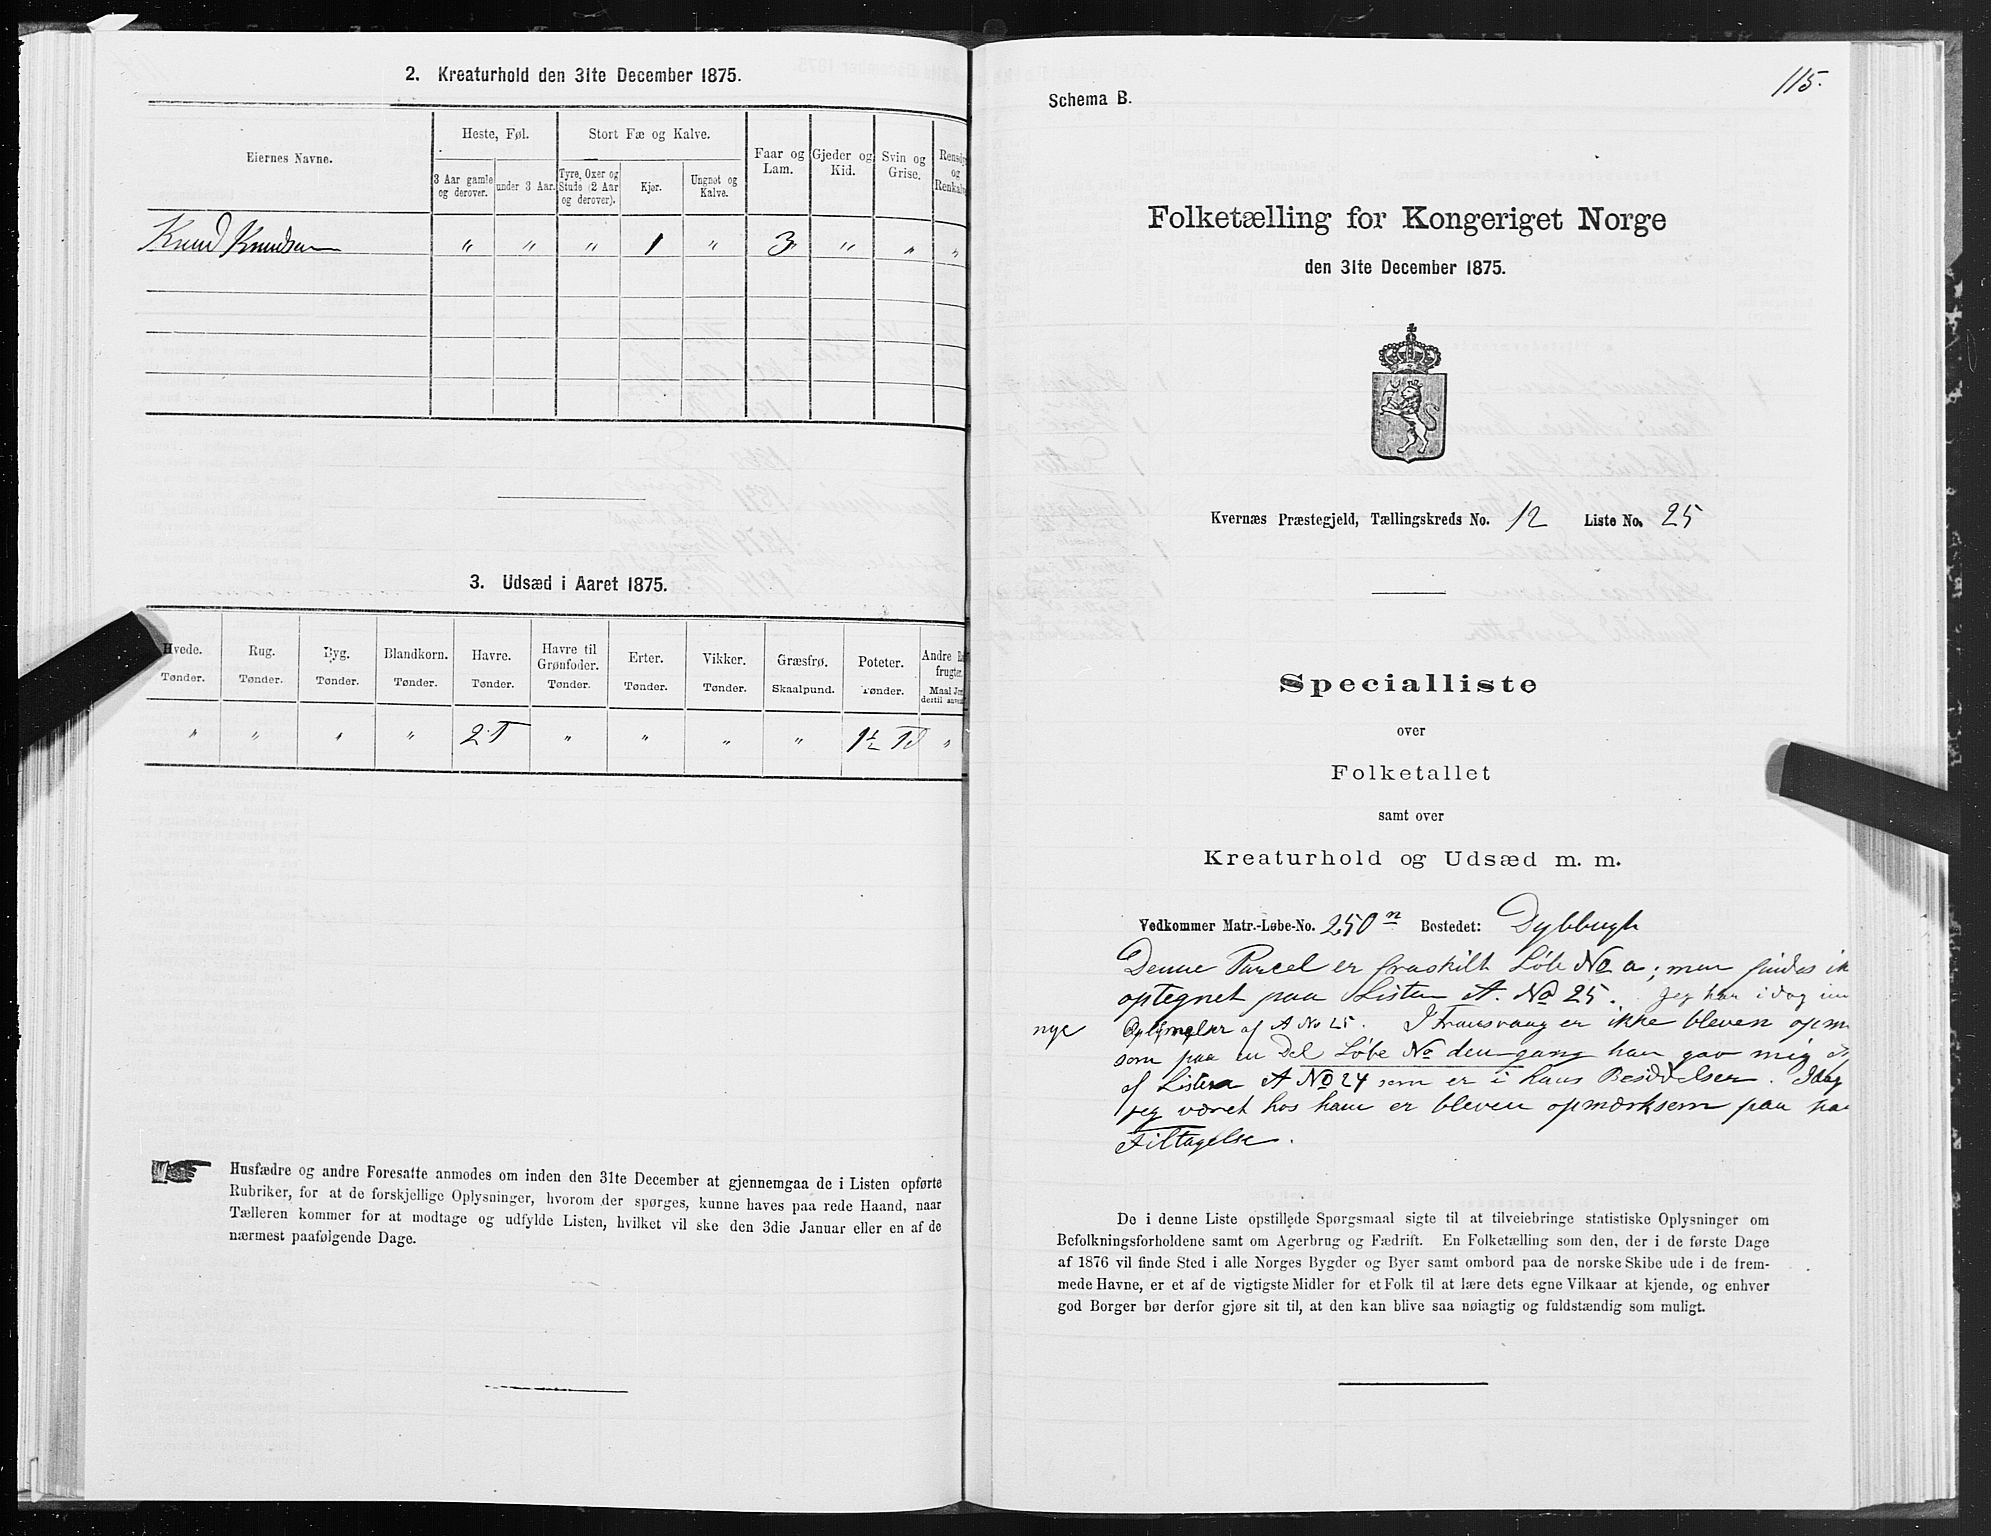 2. Kreaturhold den 31te December 1875.
Eiernes Navne.
Heste, Føl.
Stort Fæ og Kalve.
Faar og Lam.
Gjeder og Kid.
Svin og Grise.
Rensdyr og Renkalve
3 Aar gamle og derover.
under 3 Aar.
Tyre, Oxer og Stude (2 Aar og derover).
Kjør.
Ungnøt og Kalve.
Knud Knudsen " " " 1 " 3 " " "
3. Udsæd i Aaret 1875.
Hvede. Rug. Byg. Blandkorn. Havre. Havre til Grønfoder. Erter. Vikker. Græsfrø. Poteter. Andre
frugter.
Tønder. Tønder. Tønder. Tønder. Tønder. Tønder. Tønder. Tønder. Skaalpund. Tønder. Maal
dertil
" " " " 2 T " " " " 1½ Td "
Husfædre og andre Foresatte anmodes om inden den 31te December at gjennemgaa de i Listen opførte
Rubriker, for at de forskjellige Oplysninger, hvorom der spørges, kunne haves paa rede Haand, naar
Tælleren kommer for at modtage og udfylde Listen, hvilket vil ske den 3die Januar eller en af de
nærmest paafølgende Dage.
115.
Schema B.
Folketælling for Kongeriget Norge
den 31te December 1875.
Kvernæs Præstegjeld, Tællingskreds No. 12 Liste No. 25
Specialliste
over
Folketallet
samt over
Kreaturhold og Udsæd m. m.
Vedkommer Matr.-Løbe-No. 250 n Bostedet: Dybbugt
Denne Parcel er fraskilt Løbe No a; men findes ik
optegnet paa Listen A. No 25. Jeg har idag
nye Oplysnelser af A No 25. I Fransvaag er ikke bleven opm
som paa en Del Løbe No dengang han gav mig
af Listen A No 24 som er i hans Besiddelser. Idag
jeg været hos ham er bleven opmærksom paa
Tiltagelse.
De i denne Liste opstillede Spørgsmaal sigte til at tilveiebringe statistiske Oplysninger om
Befolkningsforholdene samt om Agerbrug og Fædrift. En Folketælling som den, der i de første Dage
af 1876 vil finde Sted i alle Norges Bygder og Byer samt ombord paa de norske Skibe ude i de frem-
mede Havne, er et af de vigtigste Midler for et Folk til at lære dets egne Vilkaar at kjende, og enhver
god Borger bør derfor gjøre sit til, at den kan blive saa nøiagtig og fuldstændig som muligt.